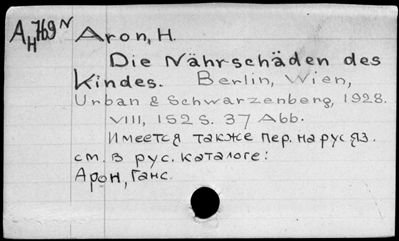 A_H 769 N Aron, H.
Die Nährschäden des
Kindes. Berlin, Wien,
Urban & Schwarzenberg, 1928.
VIII, 152 S. 37 Abb.
Имеется также пер. на рус яз.
см. в рус. каталоге:
Арон, Ганс.